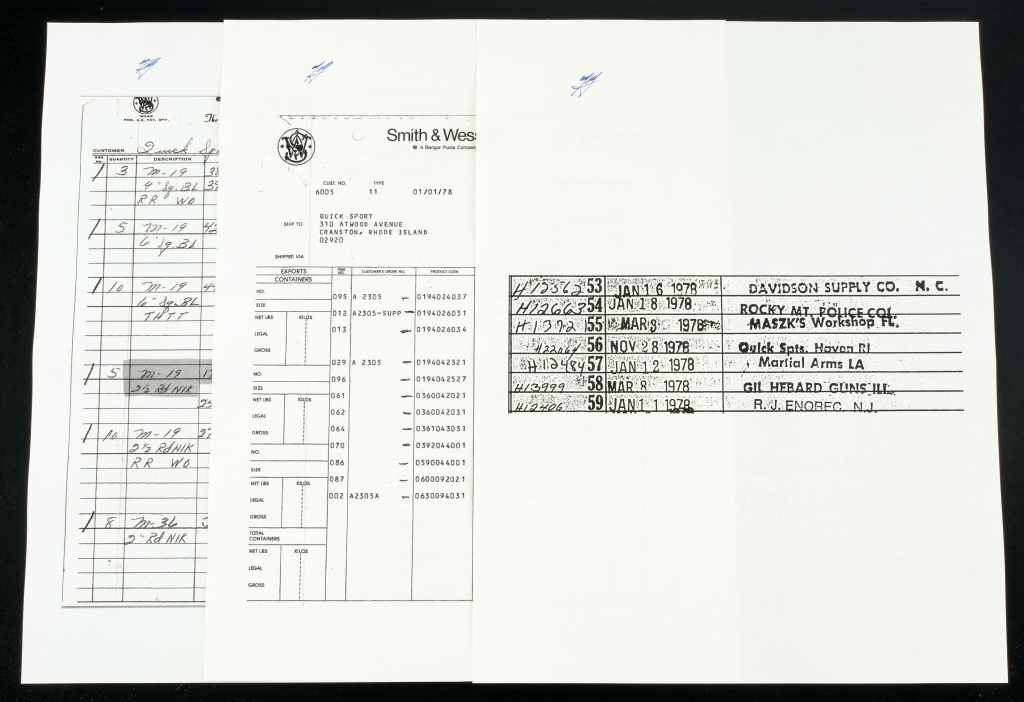 REG. U.S. PAT. OFF.
CUSTOMER Quick Sp
QUANTITY DESCRIPTION
3 M-19
4" Sq. BL
RR WO
5 M-19
6" Sq. BL
10 M-19
6" Sq. BL
TH TT
5 M-19
2½ Rd NIK
10 M-19
2½ Rd NIK
RR WO
8 M-36
2" Rd NIK
Smith & Wes
A Bangor Punta Company
CUST. NO. TYPE
6005 11 01/01/78
SHIP TO
QUICK SPORT
310 ATWOOD AVENUE
CRANSTON, RHODE ISLAND
02920
SHIPPED VIA
EXPORTS
CONTAINERS
ITEM NO. CUSTOMER'S ORDER NO. PRODUCT CODE
NO.
SIZE
NET LBS KILOS
LEGAL
GROSS
NO.
SIZE
NET LBS KILOS
LEGAL
GROSS
NO.
SIZE
NET LBS KILOS
LEGAL
GROSS
TOTAL CONTAINERS
NET LBS KILOS
LEGAL
GROSS
095 A 2305 — 0194024037
012 A2305-SUPP — 0194026031
013 — 0194026034
029 A 2305 — 0194042521
096 — 0194042527
061 — 0360042021
062 — 0360042031
064 — 0361043031
070 — 0392044001
086 — 0590044001
087 — 0600092021
002 A2305A — 0630094031
H12562 53 JAN 16 1978 DAVIDSON SUPPLY CO. N. C.
H12663 54 JAN 18 1978 ROCKY MT. POLICE COL
55 MAR 3 1978 MASZK'S Workshop FL.
56 NOV 28 1978 Quick Spts. Haven RI
H12484 57 JAN 12 1978 Martial Arms LA
H13999 58 MAR 8 1978 GIL HEBARD GUNS ILL.
H12406 59 JAN 11 1978 R. J. ENOREC, N.J.